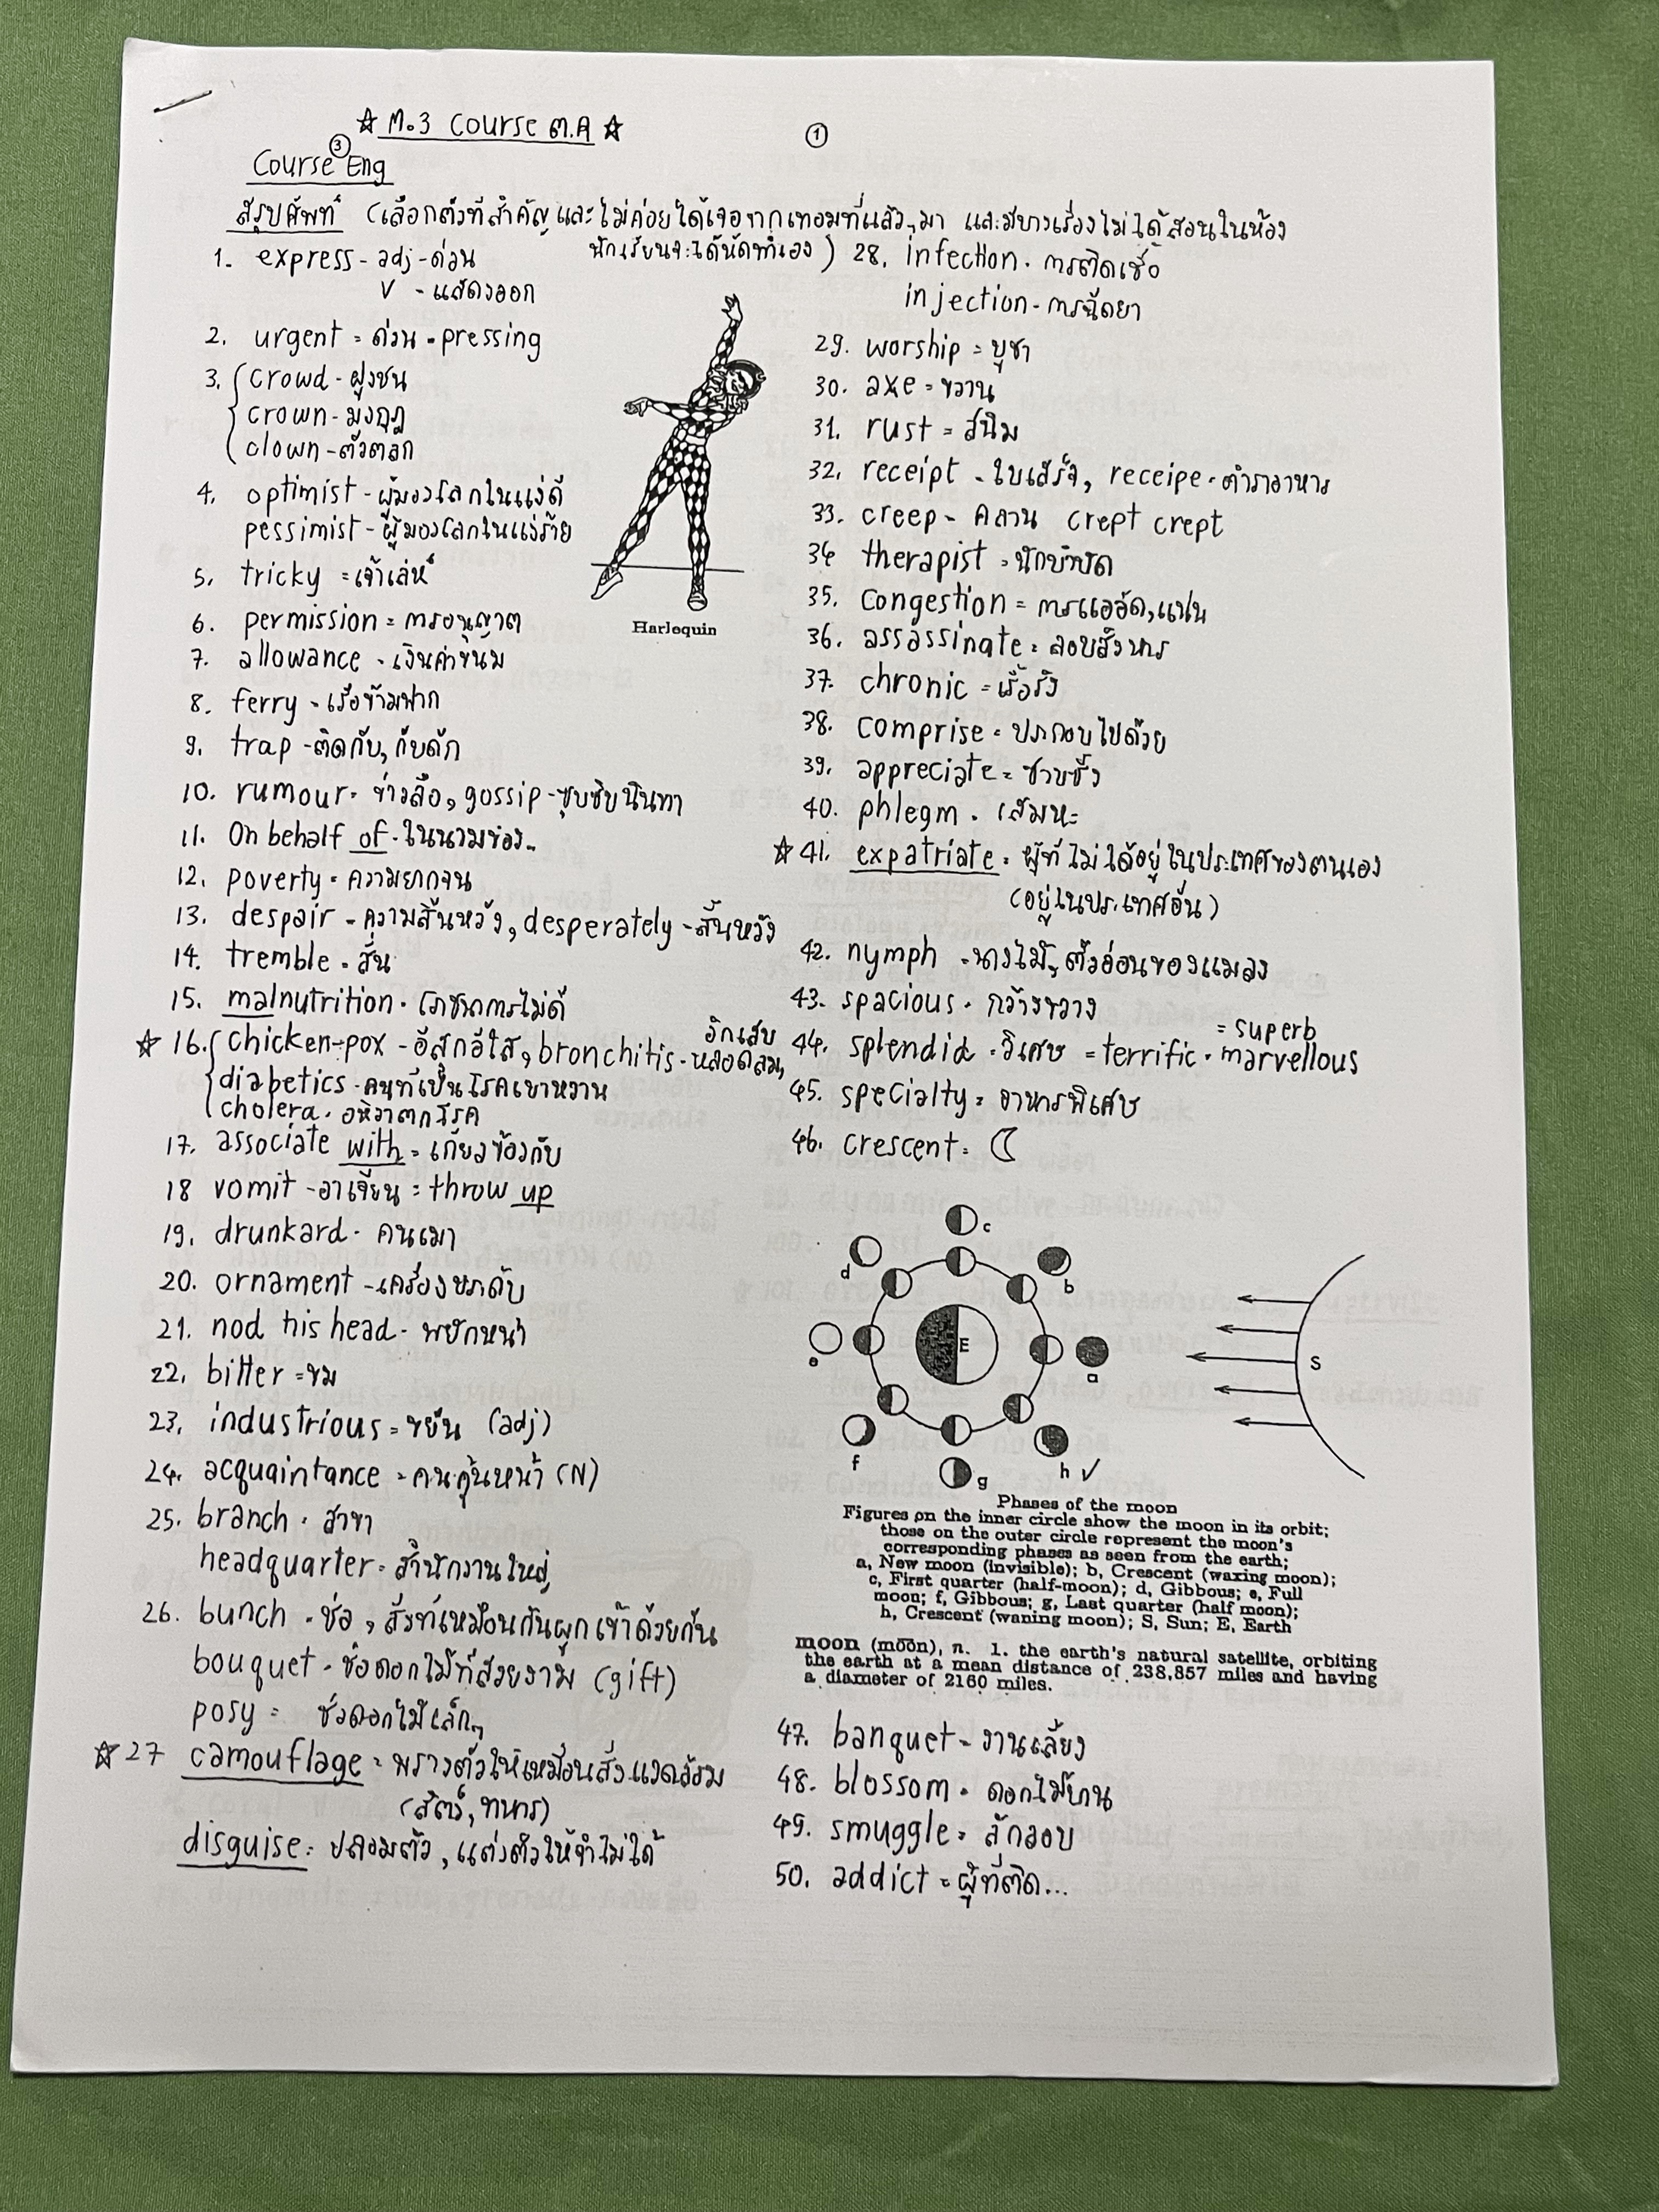 ☆ M.3 Course ต.A ☆
①
Course ③ Eng
สรุปศัพท์ (เลือกตัวที่สำคัญ และไม่ค่อยได้เจอจากเทอมที่แล้วๆมา และมีบางเรื่องไม่ได้สอนในห้อง
นักเรียนจะได้หัดทำเอง)
1. express - adj - ด่วน
v - แสดงออก
2. urgent = ด่วน = pressing
3. crowd - ฝูงชน
crown - มงกุฎ
clown - ตัวตลก
4. optimist - ผู้มองโลกในแง่ดี
pessimist - ผู้มองโลกในแง่ร้าย
5. tricky = เจ้าเล่ห์
6. permission = การอนุญาต
7. allowance - เงินค่าขนม
8. ferry - เรือข้ามฟาก
9. trap - ติดกับ, กับดัก
10. rumour - ข่าวลือ, gossip - ซุบซิบนินทา
11. On behalf of - ในนามของ..
12. poverty - ความยากจน
13. despair - ความสิ้นหวัง, desperately - สิ้นหวัง
14. tremble - สั่น
15. malnutrition - โภชนาการไม่ดี
☆ 16. chicken-pox - อีสุกอีใส, bronchitis - หลอดลมอักเสบ,
diabetics - คนที่เป็นโรคเบาหวาน
cholera - อหิวาตกโรค
17. associate with = เกี่ยวข้องกับ
18 vomit - อาเจียน = throw up
19. drunkard - คนเมา
20. ornament - เครื่องประดับ
21. nod his head - พยักหน้า
22. bitter = ขม
23. industrious = ขยัน (adj)
24. acquaintance = คนคุ้นหน้า (N)
25. branch - สาขา
headquarter = สำนักงานใหญ่
26. bunch - ช่อ, สิ่งที่เหมือนกันผูกเข้าด้วยกัน
bouquet - ช่อดอกไม้ที่สวยงาม (gift)
posy = ช่อดอกไม้เล็กๆ
☆ 27 camouflage = พรางตัวให้เหมือนสิ่งแวดล้อม
(สัตว์, ทหาร)
disguise = ปลอมตัว, แต่งตัวให้จำไม่ได้
Harlequin
28. infection - การติดเชื้อ
injection - การฉีดยา
29. worship = บูชา
30. axe = ขวาน
31. rust = สนิม
32. receipt - ใบเสร็จ, receipe - ตำราอาหาร
33. creep - คลาน crept crept
34 therapist = นักบำบัด
35. congestion = การแออัด, แน่น
36. assassinate = ลอบสังหาร
37. chronic = เรื้อรัง
38. comprise = ประกอบไปด้วย
39. appreciate = ซาบซึ้ง
40. phlegm - เสมหะ
☆ 41. expatriate = ผู้ที่ไม่ได้อยู่ในประเทศของตนเอง
(อยู่ในประเทศอื่น)
42. nymph - นางไม้, ตัวอ่อนของแมลง
43. spacious - กว้างขวาง
44. splendid - วิเศษ = terrific = marvellous = superb
45. specialty = อาหารพิเศษ
46. crescent =
c
d
b
e
E
a
S
f
h ✓
g
Phases of the moon
Figures on the inner circle show the moon in its orbit;
those on the outer circle represent the moon's
corresponding phases as seen from the earth;
a, New moon (invisible); b, Crescent (waxing moon);
c, First quarter (half-moon); d, Gibbous; e, Full
moon; f, Gibbous; g, Last quarter (half moon);
h, Crescent (waning moon); S, Sun; E, Earth
moon (mōōn), n. 1. the earth's natural satellite, orbiting
the earth at a mean distance of 238,857 miles and having
a diameter of 2160 miles.
47. banquet - งานเลี้ยง
48. blossom - ดอกไม้บาน
49. smuggle = ลักลอบ
50. addict = ผู้ที่ติด...